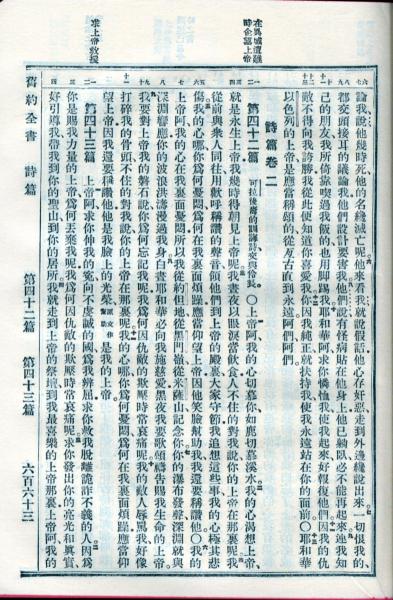 在異域遭難
時企慕上帝
求上帝救援
論我說他幾時死他的名纔滅亡呢他來看我就說假話他心存奸惡走到外邊纔說出來一切恨我的
都交頭接耳的議論我他們設計要害我他們說有怪病貼在他身上他已躺臥必不能再起來連我知
己的朋友我所倚靠喫過我飯的也用脚踢我耶和華阿求你憐恤我使我起來好報復他們因我的仇
敵不得向我誇勝我從此便知道你喜愛我你因我純正就扶持我使我永遠站在你的面前〇耶和華
以色列的上帝是應當稱頌的從亙古直到永遠阿們阿們
詩篇卷二
第四十二篇 可拉後裔的訓誨詩交與伶長〇上帝阿我的心切慕你如鹿切慕溪水我的心渴想上帝
就是永生上帝我幾時得朝見上帝呢我晝夜以眼淚當飲食人不住的對我說你的上帝在那裏呢我
從前與衆人同往用歡呼稱讚的聲音領他們到上帝的殿裏大家守節我追想這些事我的心極其悲
傷我的心哪你爲何憂悶爲何在我裏面煩躁應當仰望上帝因他笑臉幫助我我還要稱讚他〇我的
上帝阿我的心在我裏面憂悶所以我從約但地從黑門嶺從米薩山記念你你的瀑布發聲深淵就與
深淵響應你的波浪洪濤漫過我身白晝耶和華必向我施慈愛黑夜我要歌頌禱告賜我生命的上帝
我要對上帝我的磐石說你爲何忘記我呢我爲何因仇敵的欺壓時常哀痛呢我的敵人辱罵我好像
打碎我的骨頭不住的對我說你的上帝在那裏呢我的心哪你爲何憂悶爲何在我裏面煩躁應當仰
望上帝因我還要稱讚他他是我臉上的光榮原文作幫助是我的上帝
第四十三篇 上帝阿求你伸我的冤向不虔誠的國爲我辨屈求你救我脫離詭詐不義的人因爲
你是賜我力量的上帝爲何丟棄我呢我爲何因仇敵的欺壓時常哀痛呢求你發出你的亮光和眞實
好引導我帶我到你的聖山到你的居所我就走到上帝的祭壇到我最喜樂的上帝那裏上帝阿我的
舊約全書 詩篇 第四十二篇 第四十三篇 六百六十三